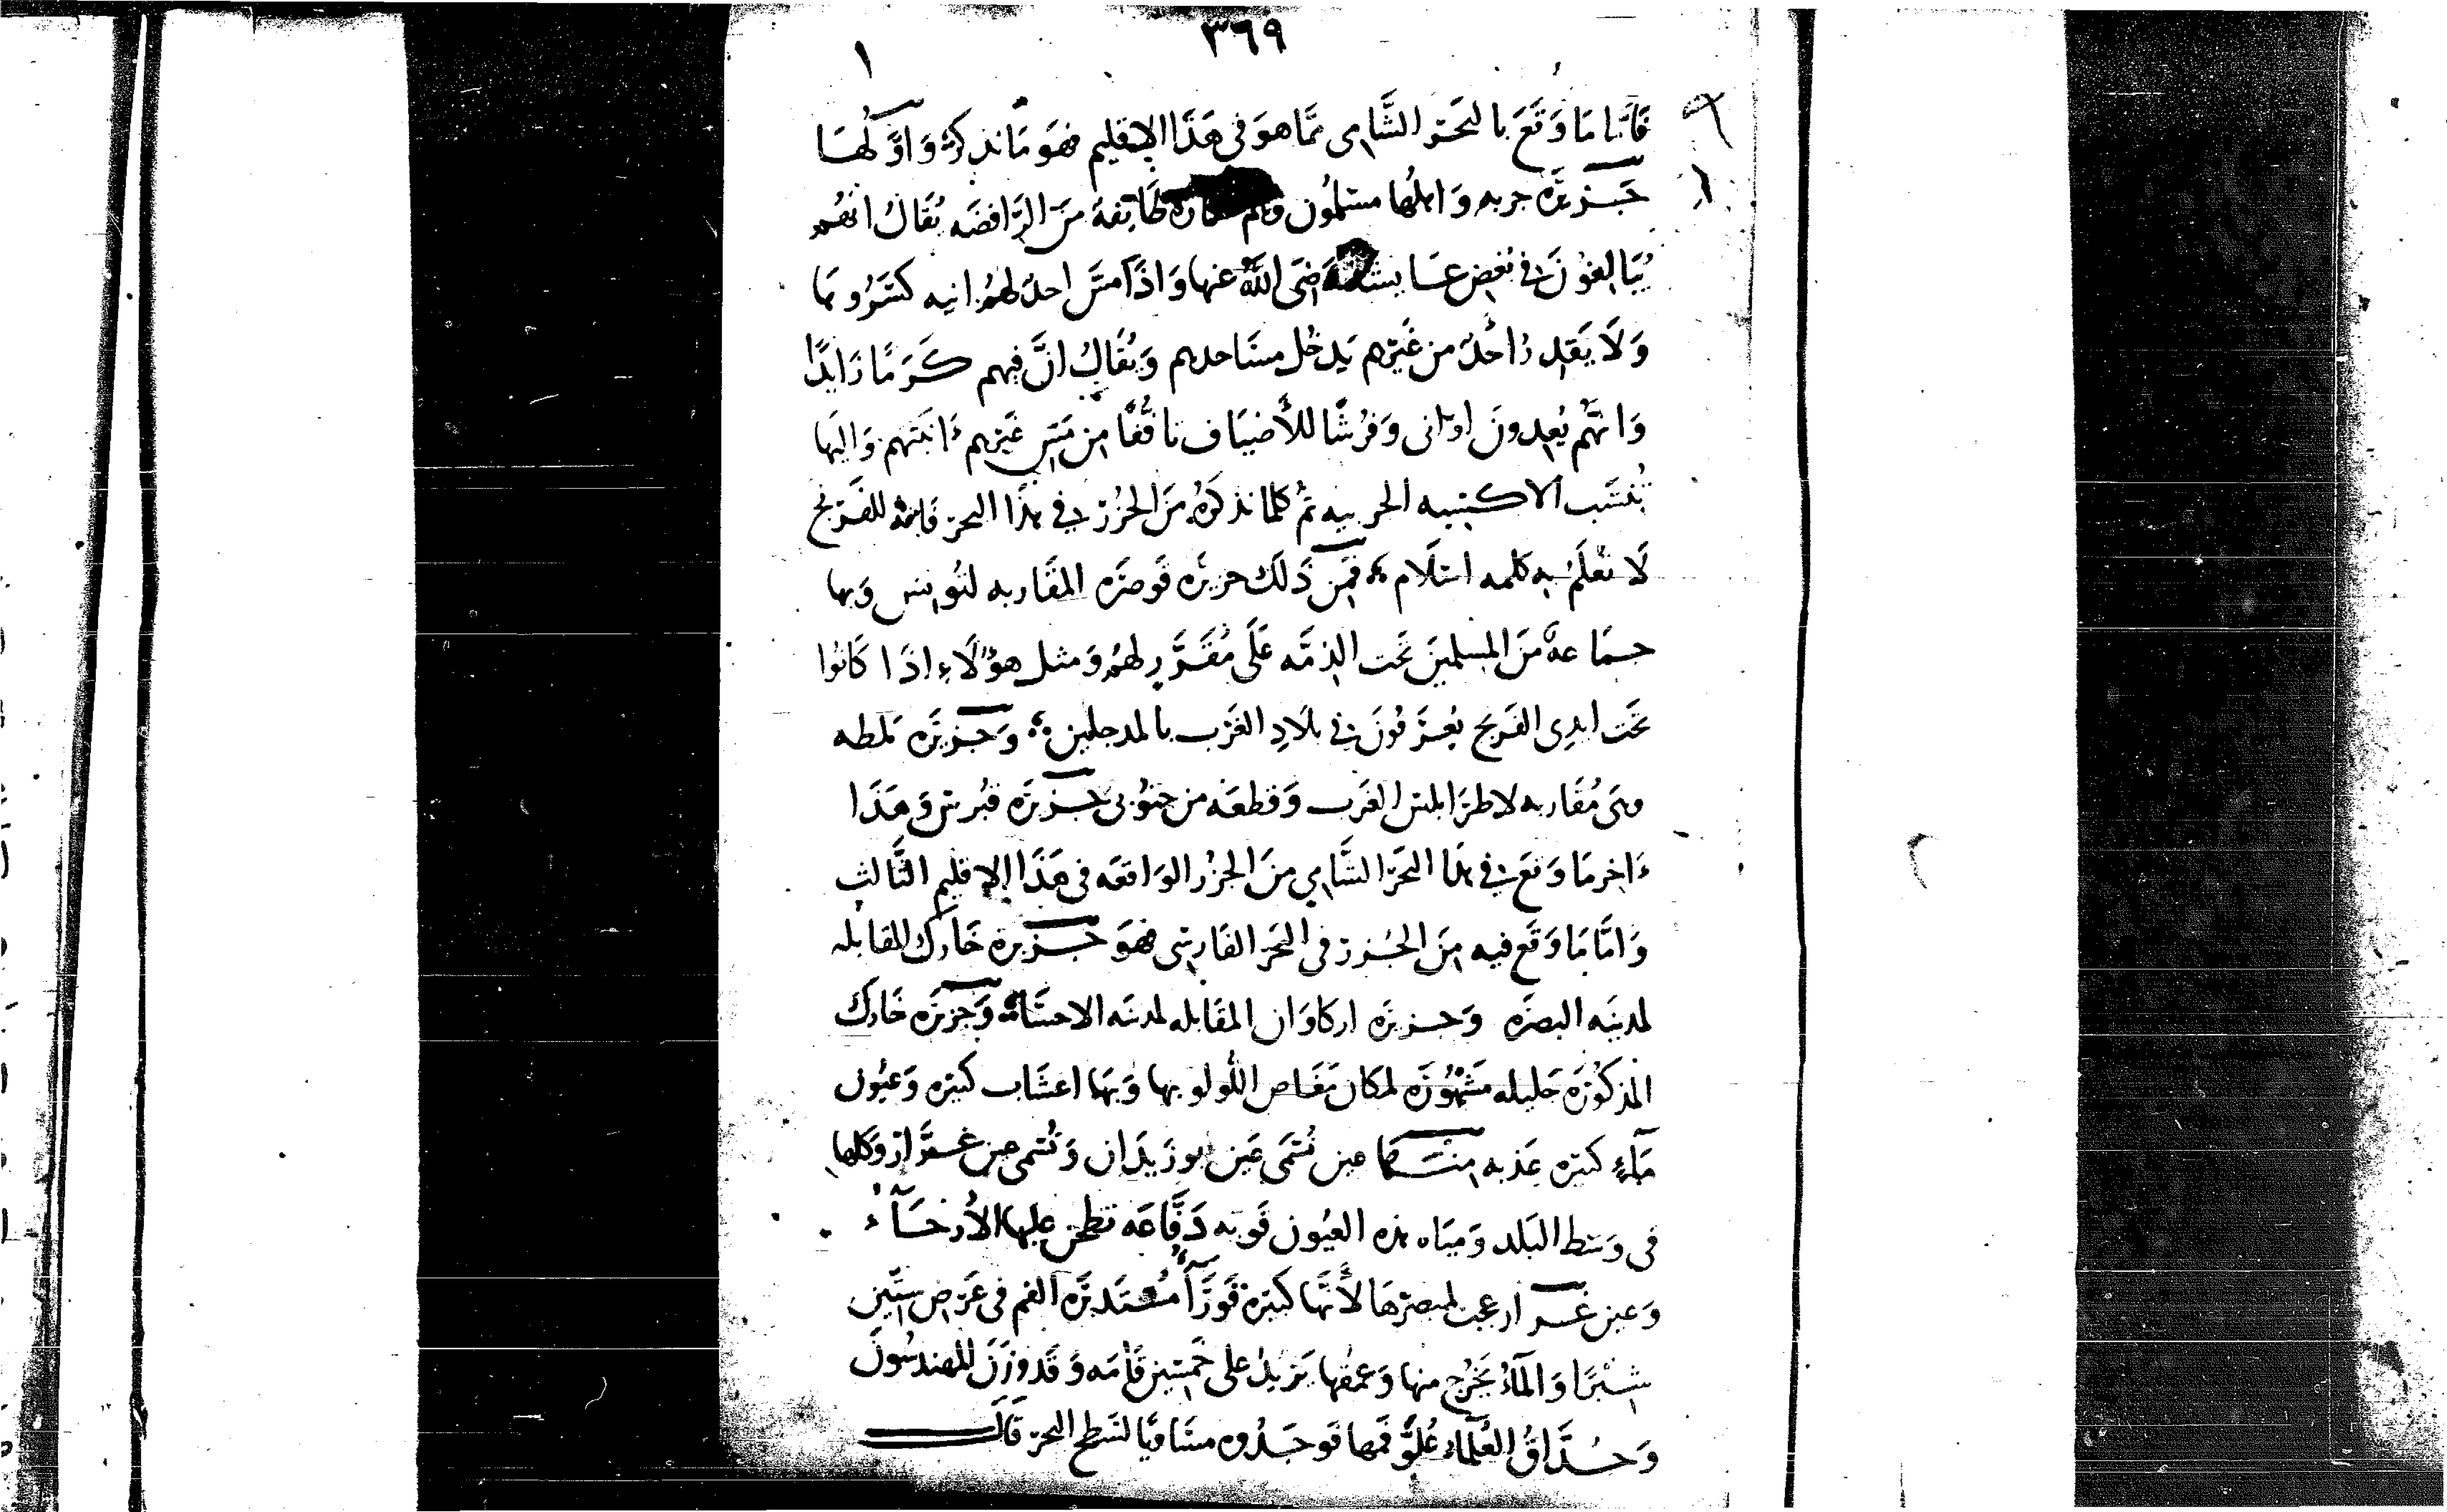 ٣٦٩
١
فَأمَّا مَا وَقَعَ بالبحَر الشَّامِى ممَّا هوَ فى هَذَا الإقليم فهوَ مَا نذكرهُ وَاوَّلهَا
جَزيَره جربه وَاهلُهَا مسلمُون وهم طَايفة مّنَ الرَّافضَه يُقَالُ انهُم
يُبَالِغونَ في بُغضِ عَايشة رَضَى اللَّهُ عنها وَاذَا مسَّ احدٌ لهُم انيه كسَرُوهَا
وَلَا يَقدِرُ احُدٌ من غَيرهم يَدخُل مسَاجدهم وَيُقَالُ انَّ فيهم كَرَمًا زَايدًا
وَانَّهُم يُعدونَ اوَانى وَفرُشًا للأضيَاف تاَفُّفًا مِن مَسّ غَيرهم ءَانيَتهم وَاليهَا
تُنسَب الاكسيه الجربيه ثمُ كلمَا نذكرُه مِنَ الجزُر في هذَا البحر فَإنهُ للفَرنج
لَا نعْلَمُ بِه كلمه اسلَام فمِنَ ذَلك جزيَره قَوصَرَه المقَاربه لتُونس وَبها
جمَاعةٌ مِنَ المسلمينَ تَحت الذِمَّه عَلَى مُقَرَّرٍ لهُم وَمثل هؤُلَاءِ اذَا كَانوا
تَحت ايدِى الفرَنج يُعرَفُونَ في بلَادِ الغَرْب بالمدجلين وَجَزيَره مَلطه
وهىَ مُقَاربه لاطرَابلس الغَرب وَقطعَه من جنُوبى جَزيَره قبُرس وَهَذَا
ءَاخِر مَا وَقعَ في هذَا البحَر الشَّامِي منَ الجزُر الوَاقعَه فى هَذَا الاِقليمِ الثَّالث
وَامَّا مَا وَقَع فيه مِنَ الجُزر فى البحَر الفَارِسِى فهوَ جَزيرة خَاركَ المقابله
لمدينَه البصَره وَجزيَره اركاوَان المقَابله لمدينَه الاحسَاء وَجَزيَره خَارك
المذكوُرَه جَليله مَشهُورَه لمكَان مَغَاص اللُّولو بها وَبهَا اعشَاب كثيره وَعيُون
مَآءٍ كثيره عَذبه منهَا عين تُسَمى عَين بو زَيدَان وَتُسمى عين غرَّاز وَكلهَا
فى وَسَط البَلَد وَميَاه هذه العيُون قَويه دَفَّاعَه تَطحَن عليهَا الأرْحَآءُ
وَعين غَراز عجب لمبصرهَا لأنَّهَا كبيَرة قَورَآءُ مُستَديَره الفم فى عَرْضِ ستِّينَ
شبْرًا وَالمَآءُ يَخرُج منهَا وَعمقهَا يَزيدُ على خمسِينَ قَامَه وَقَد وَزَنَ المهندسُونَ
وَحُذَّاقُ العُلمَآءِ عُلُوَّ فمهَا فَوجَدُوه مسَاويًا لسَطح البحر قَالَ